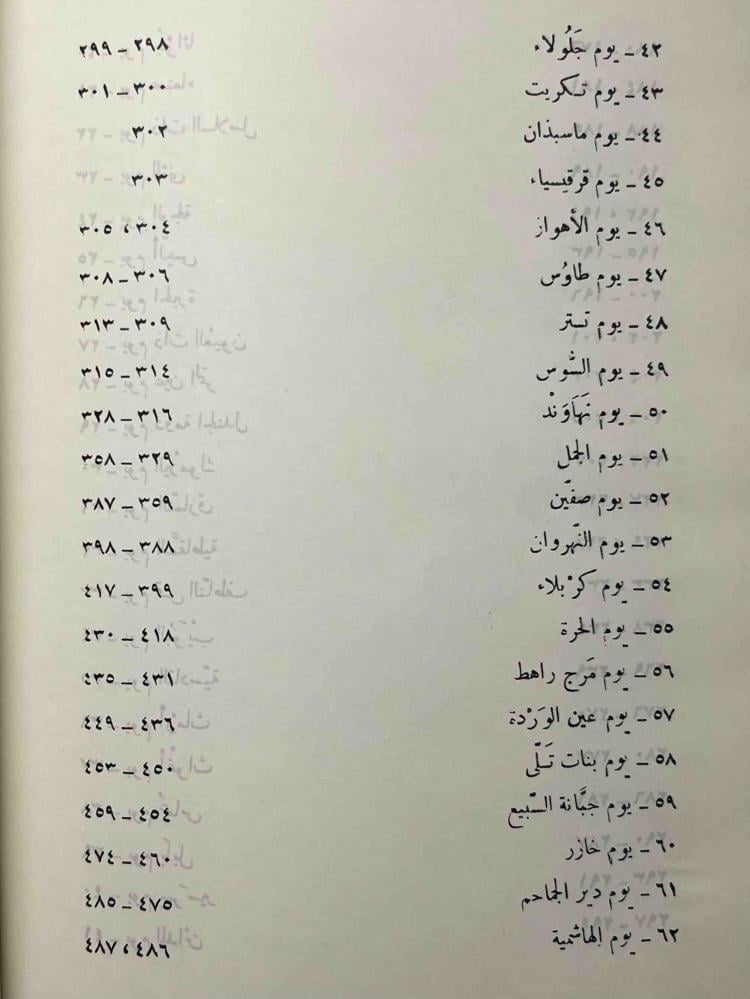 ٤٢ – يوم جَلُولاء ٢٩٨ – ٢٩٩
٤٣ – يوم تكريت ٣٠٠ – ٣٠١
٤٤ – يوم ماسبذان ٣٠٢
٤٥ – يوم قرقيسياء ٣٠٣
٤٦ – يوم الأهواز ٣٠٤ ، ٣٠٥
٤٧ – يوم طاوُس ٣٠٦ – ٣٠٨
٤٨ – يوم تستر ٣٠٩ – ٣١٣
٤٩ – يوم السُّوس ٣١٤ – ٣١٥
٥٠ – يوم نَهَاوَنْد ٣١٦ – ٣٢٨
٥١ – يوم الجمل ٣٢٩ – ٣٥٨
٥٢ – يوم صفّين ٣٥٩ – ٣٨٧
٥٣ – يوم النّهروان ٣٨٨ – ٣٩٨
٥٤ – يوم كرْبلاء ٣٩٩ – ٤١٧
٥٥ – يوم الحرة ٤١٨ – ٤٣٠
٥٦ – يوم مَرج راهط ٤٣١ – ٤٣٥
٥٧ – يوم عين الوَرْدة ٤٣٦ – ٤٤٩
٥٨ – يوم بنات تَلّى ٤٥٠ – ٤٥٣
٥٩ – يوم جبَّانة السّبيع ٤٥٤ – ٤٥٩
٦٠ – يوم خازر ٤٦٠ – ٤٧٤
٦١ – يوم دير الجماجم ٤٧٥ – ٤٨٥
٦٢ – يوم الهاشمية ٤٨٦ ، ٤٨٧